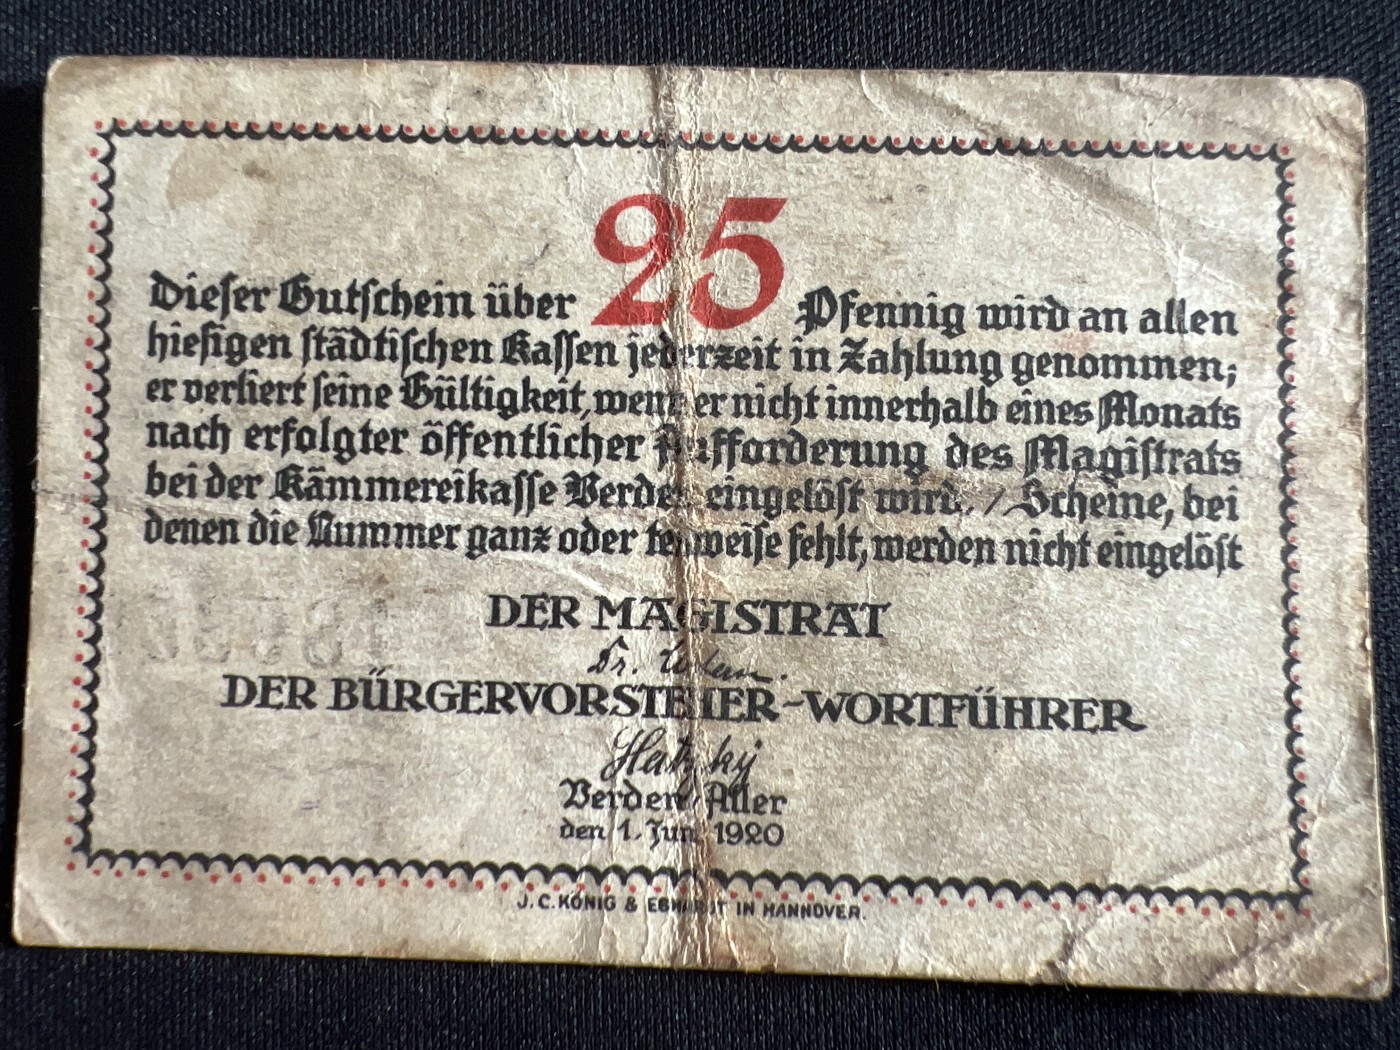 25
Dieser Gutschein über Pfennig wird an allen
hiesigen städtischen Kassen jederzeit in Zahlung genommen;
er verliert seine Gültigkeit, wenn er nicht innerhalb eines Monats
nach erfolgter öffentlicher Aufforderung des Magistrats
bei der Kämmereikasse Verden eingelöst wird. / Scheine, bei
denen die Nummer ganz oder teilweise fehlt, werden nicht eingelöst
DER MAGISTRAT
Dr.
DER BÜRGERVORSTEHER-WORTFÜHRER
Hatzky
Verden/Aller
den 1. Juni 1920
J.C.KÖNIG & EBHARDT IN HANNOVER.